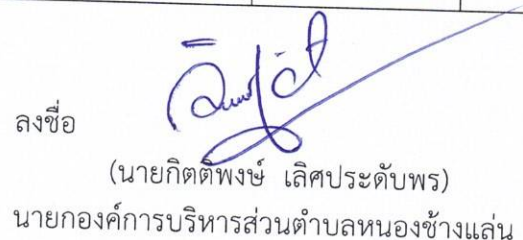 ลงชื่อ
(นายกิตติพงษ์ เลิศประดับพร)
นายกองค์การบริหารส่วนตำบลหนองช้างแล่น